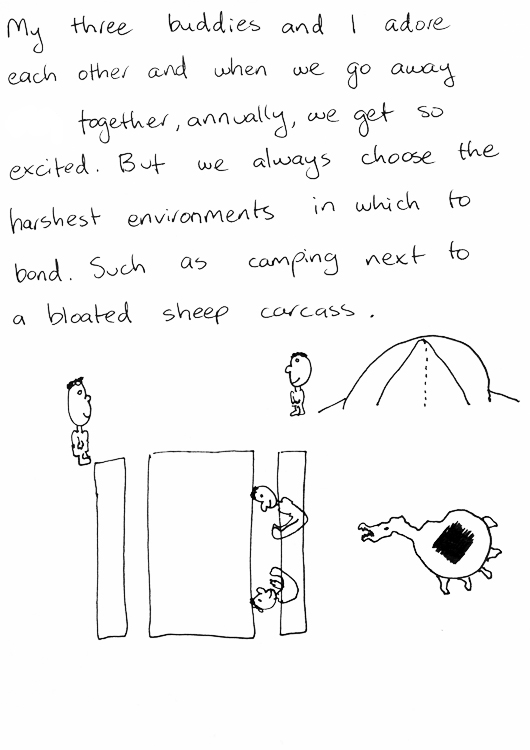 My three buddies and I adore
each other and when we go away
together, annually, we get so
excited. But we always choose the
harshest environments in which to
bond. Such as camping next to
a bloated sheep carcass.